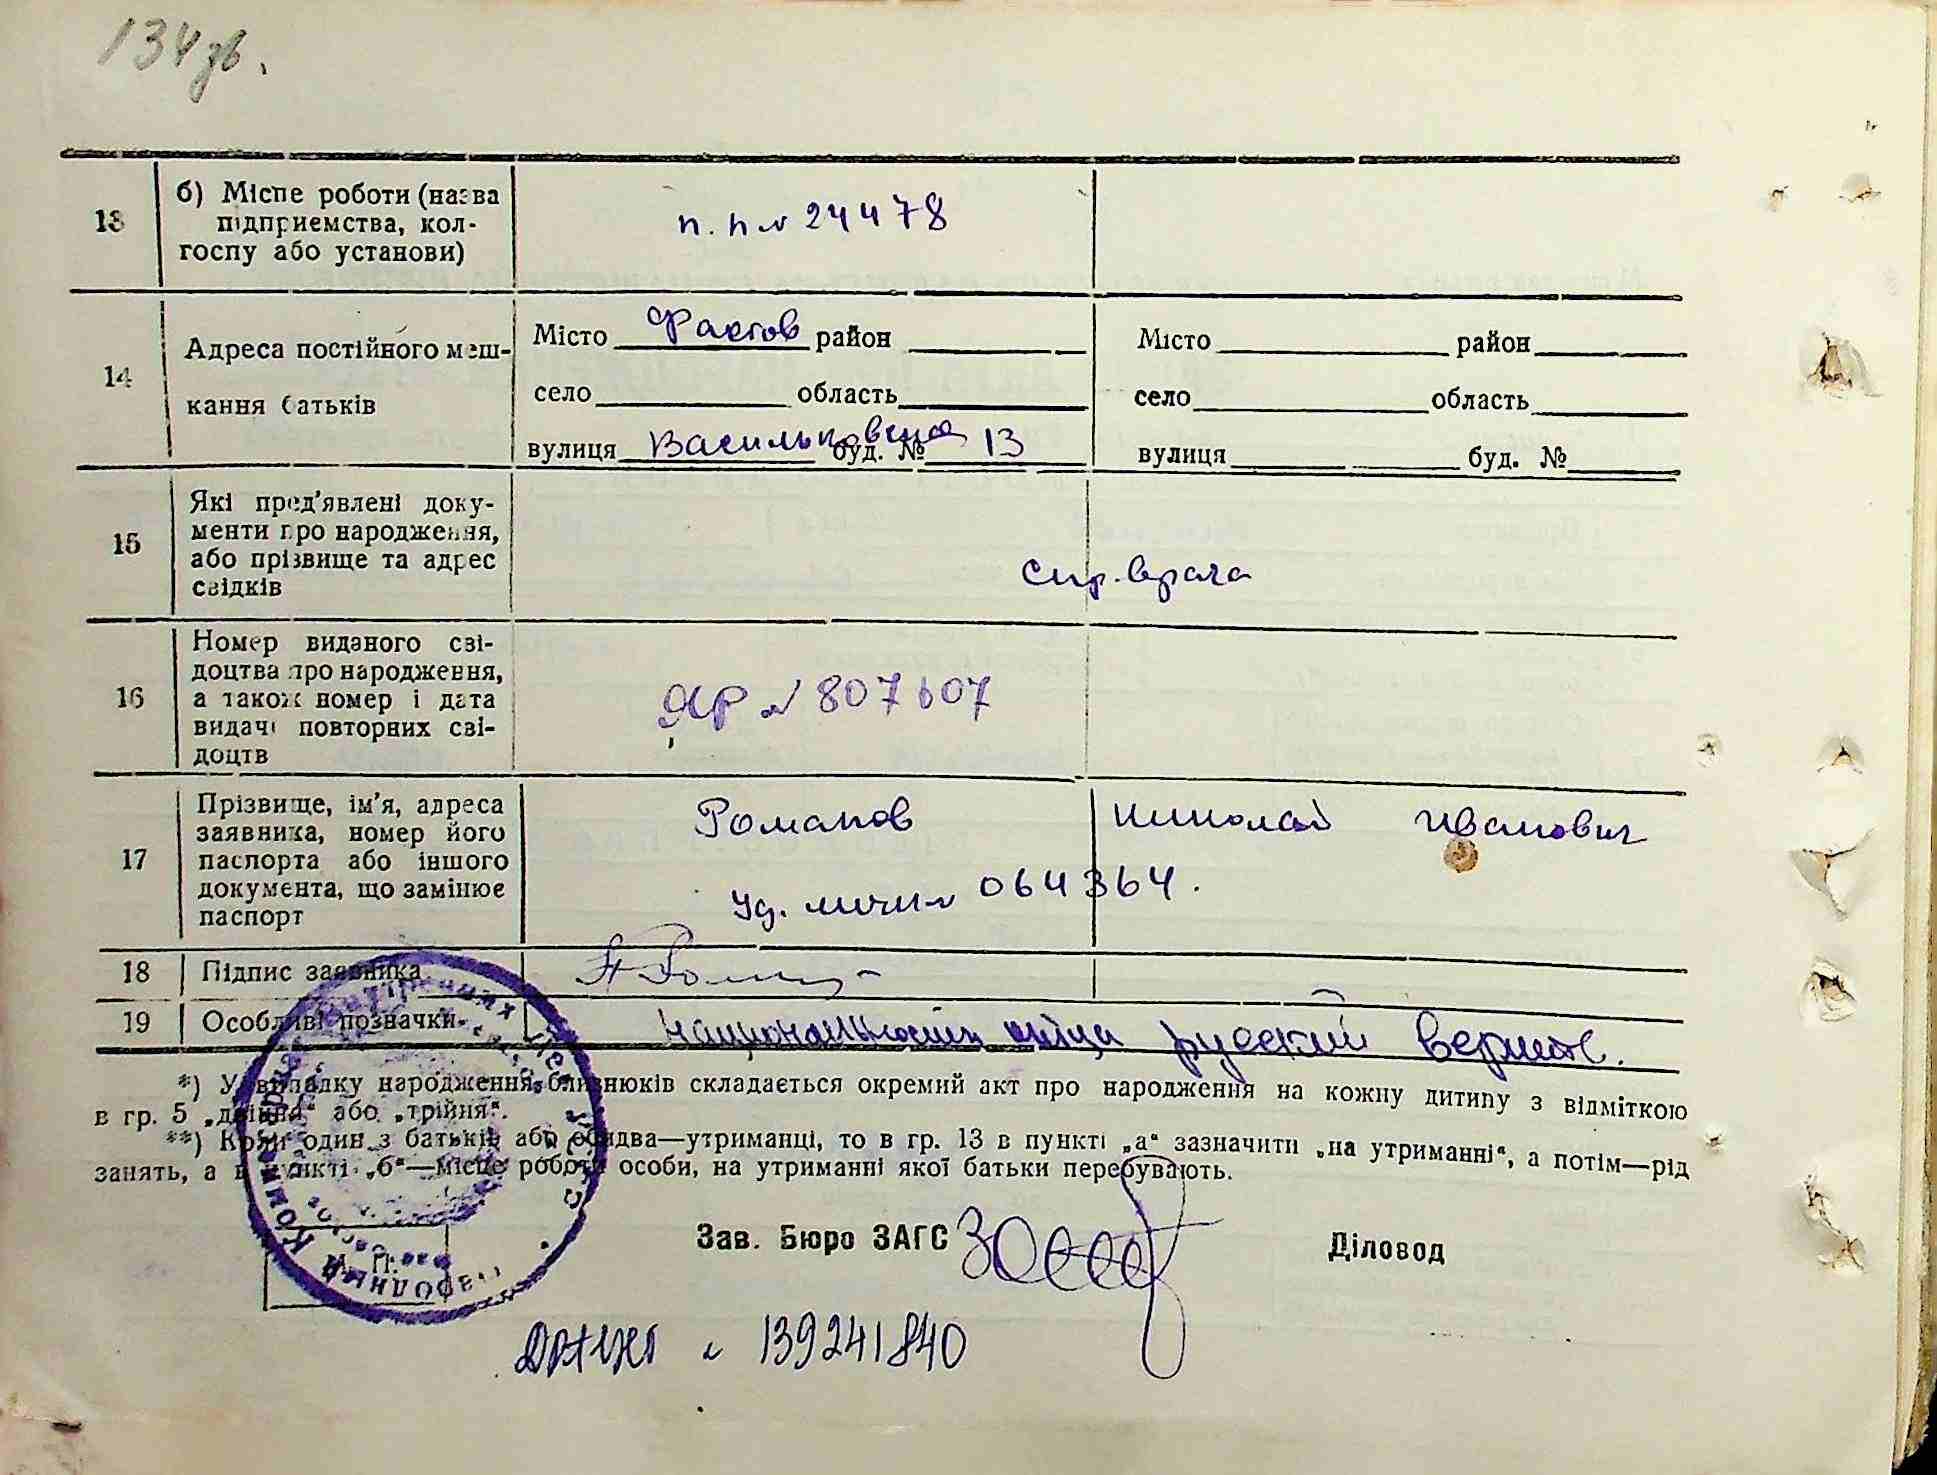 134зв.
13
б) Місце роботи (назва
підприемства, кол-
госпу або установи)
п. п № 24478
14
Адреса постійного меш-
кання батьків
Місто Фастов район
село область
вулиця Васильковская буд. № 13
Місто район
село область
вулиця буд. №
15
Які пред'явлені доку-
менти про народження,
або прізвище та адрес
свідків
спр. врача
16
Номер виданого сві-
доцтва про народження,
а також номер і дата
видачі повторних сві-
доцтв
ЯР № 807607
17
Прізвище, ім'я, адреса
заявника, номер його
паспорта або іншого
документа, що замінює
паспорт
Романов Николай Иванович
Уд. личн № 064364.
18
Підпис заявника
19
Особливі позначки
национальность отца русский верить.
*) У випадку народження близнюків складається окремий акт про народження на кожну дитину з відміткою
в гр. 5 „двійня“ або „трійня“.
**) Коли один з батьків або обидва—утриманці, то в гр. 13 в пункті „а“ зазначити „на утриманні“, а потім—рід
занять, а в пункті „б“—місце роботи особи, на утриманні якої батьки перебувають.
М. П.
Зав. Бюро ЗАГС
Діловод
ДРАЦС № 139241840